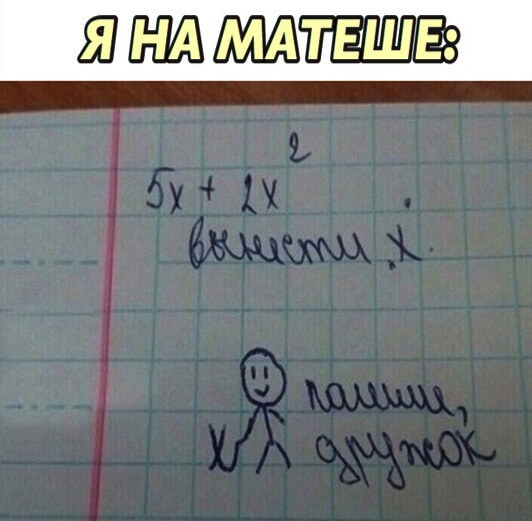 Я НА МАТЕШЕ:
5x + 2x²
вынести x.
пошли,
дружок
x